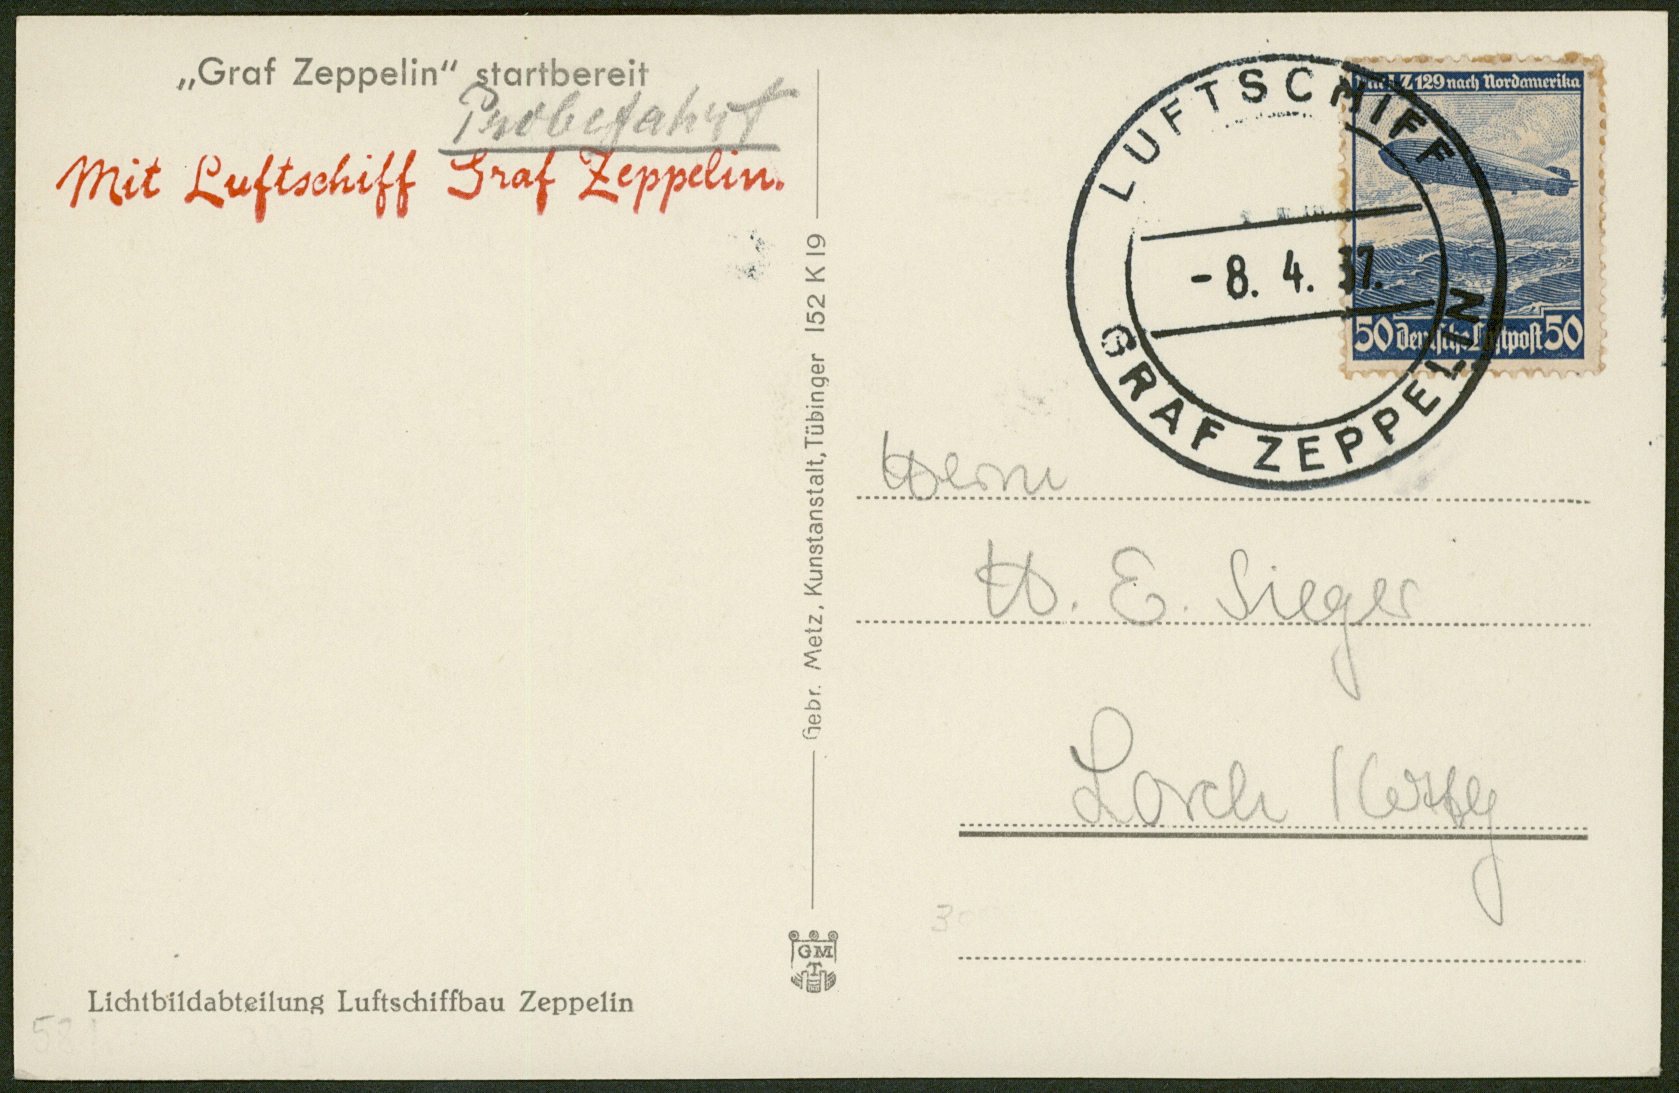 „Graf Zeppelin“ startbereit
Probefahrt
Mit Luftschiff Graf Zeppelin.
Lichtbildabteilung Luftschiffbau Zeppelin
Gebr. Metz, Kunstanstalt, Tübinger 152 K 19
GM
T
LUFTSCHIFF
-8. 4. 37.
GRAF ZEPPELIN
LZ 129 nach Nordamerika
50 Deutsche Luftpost 50
Herrn
H. E. Sieger
Lorch